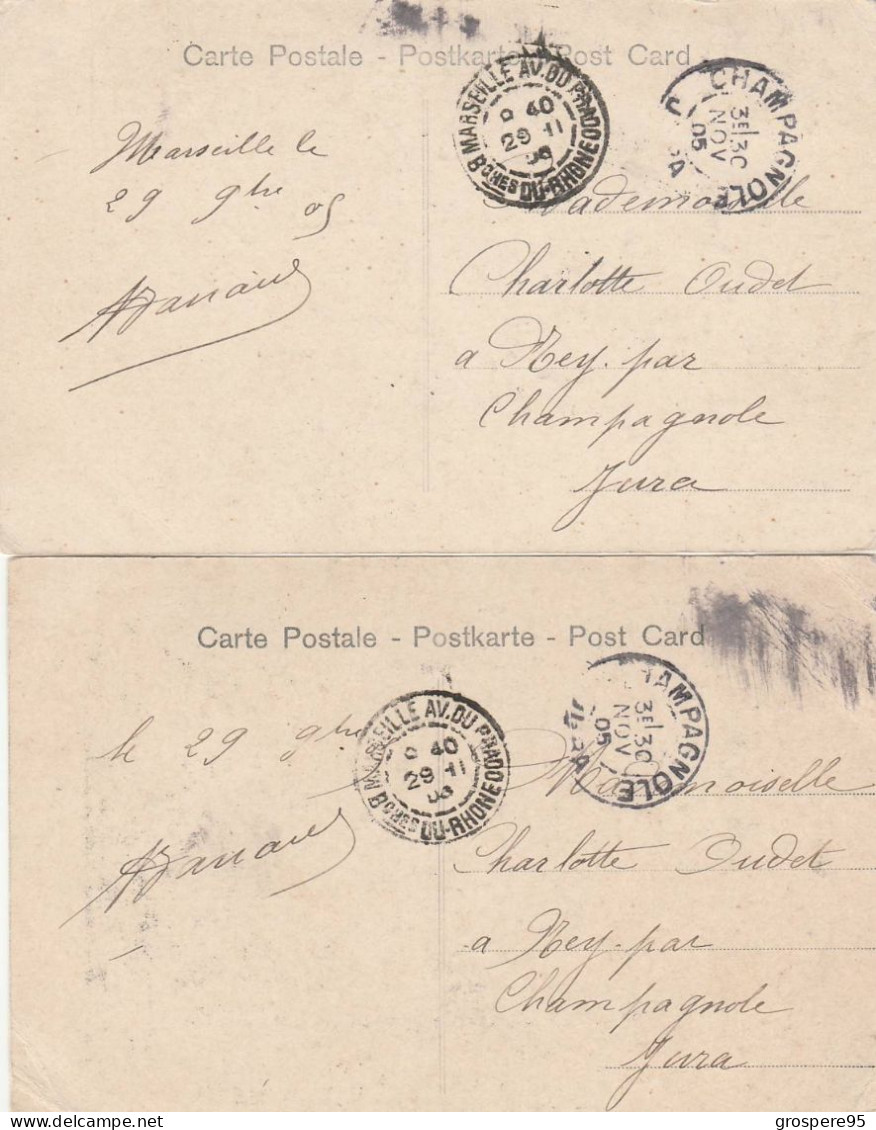 Carte Postale - Postkarte - Post Card
MARSEILLE AV. DU PRADO
40
29 11
05
BCHES DU-RHONE
CHAMPAGNOLE
3E 30
NOV
05
Marseille le
29 9bre 05
Mademoiselle
Charlotte Oudet
a Ney. par
Champagnole
Jura
Carte Postale - Postkarte - Post Card
MARSEILLE AV. DU PRADO
40
29 11
BCHES DU-RHONE
CHAMPAGNOLE
3E 30
NOV
05
JURA
le 29 9bre
Mademoiselle
Charlotte Oudet
a Ney. par
Champagnole
Jura
grospere95